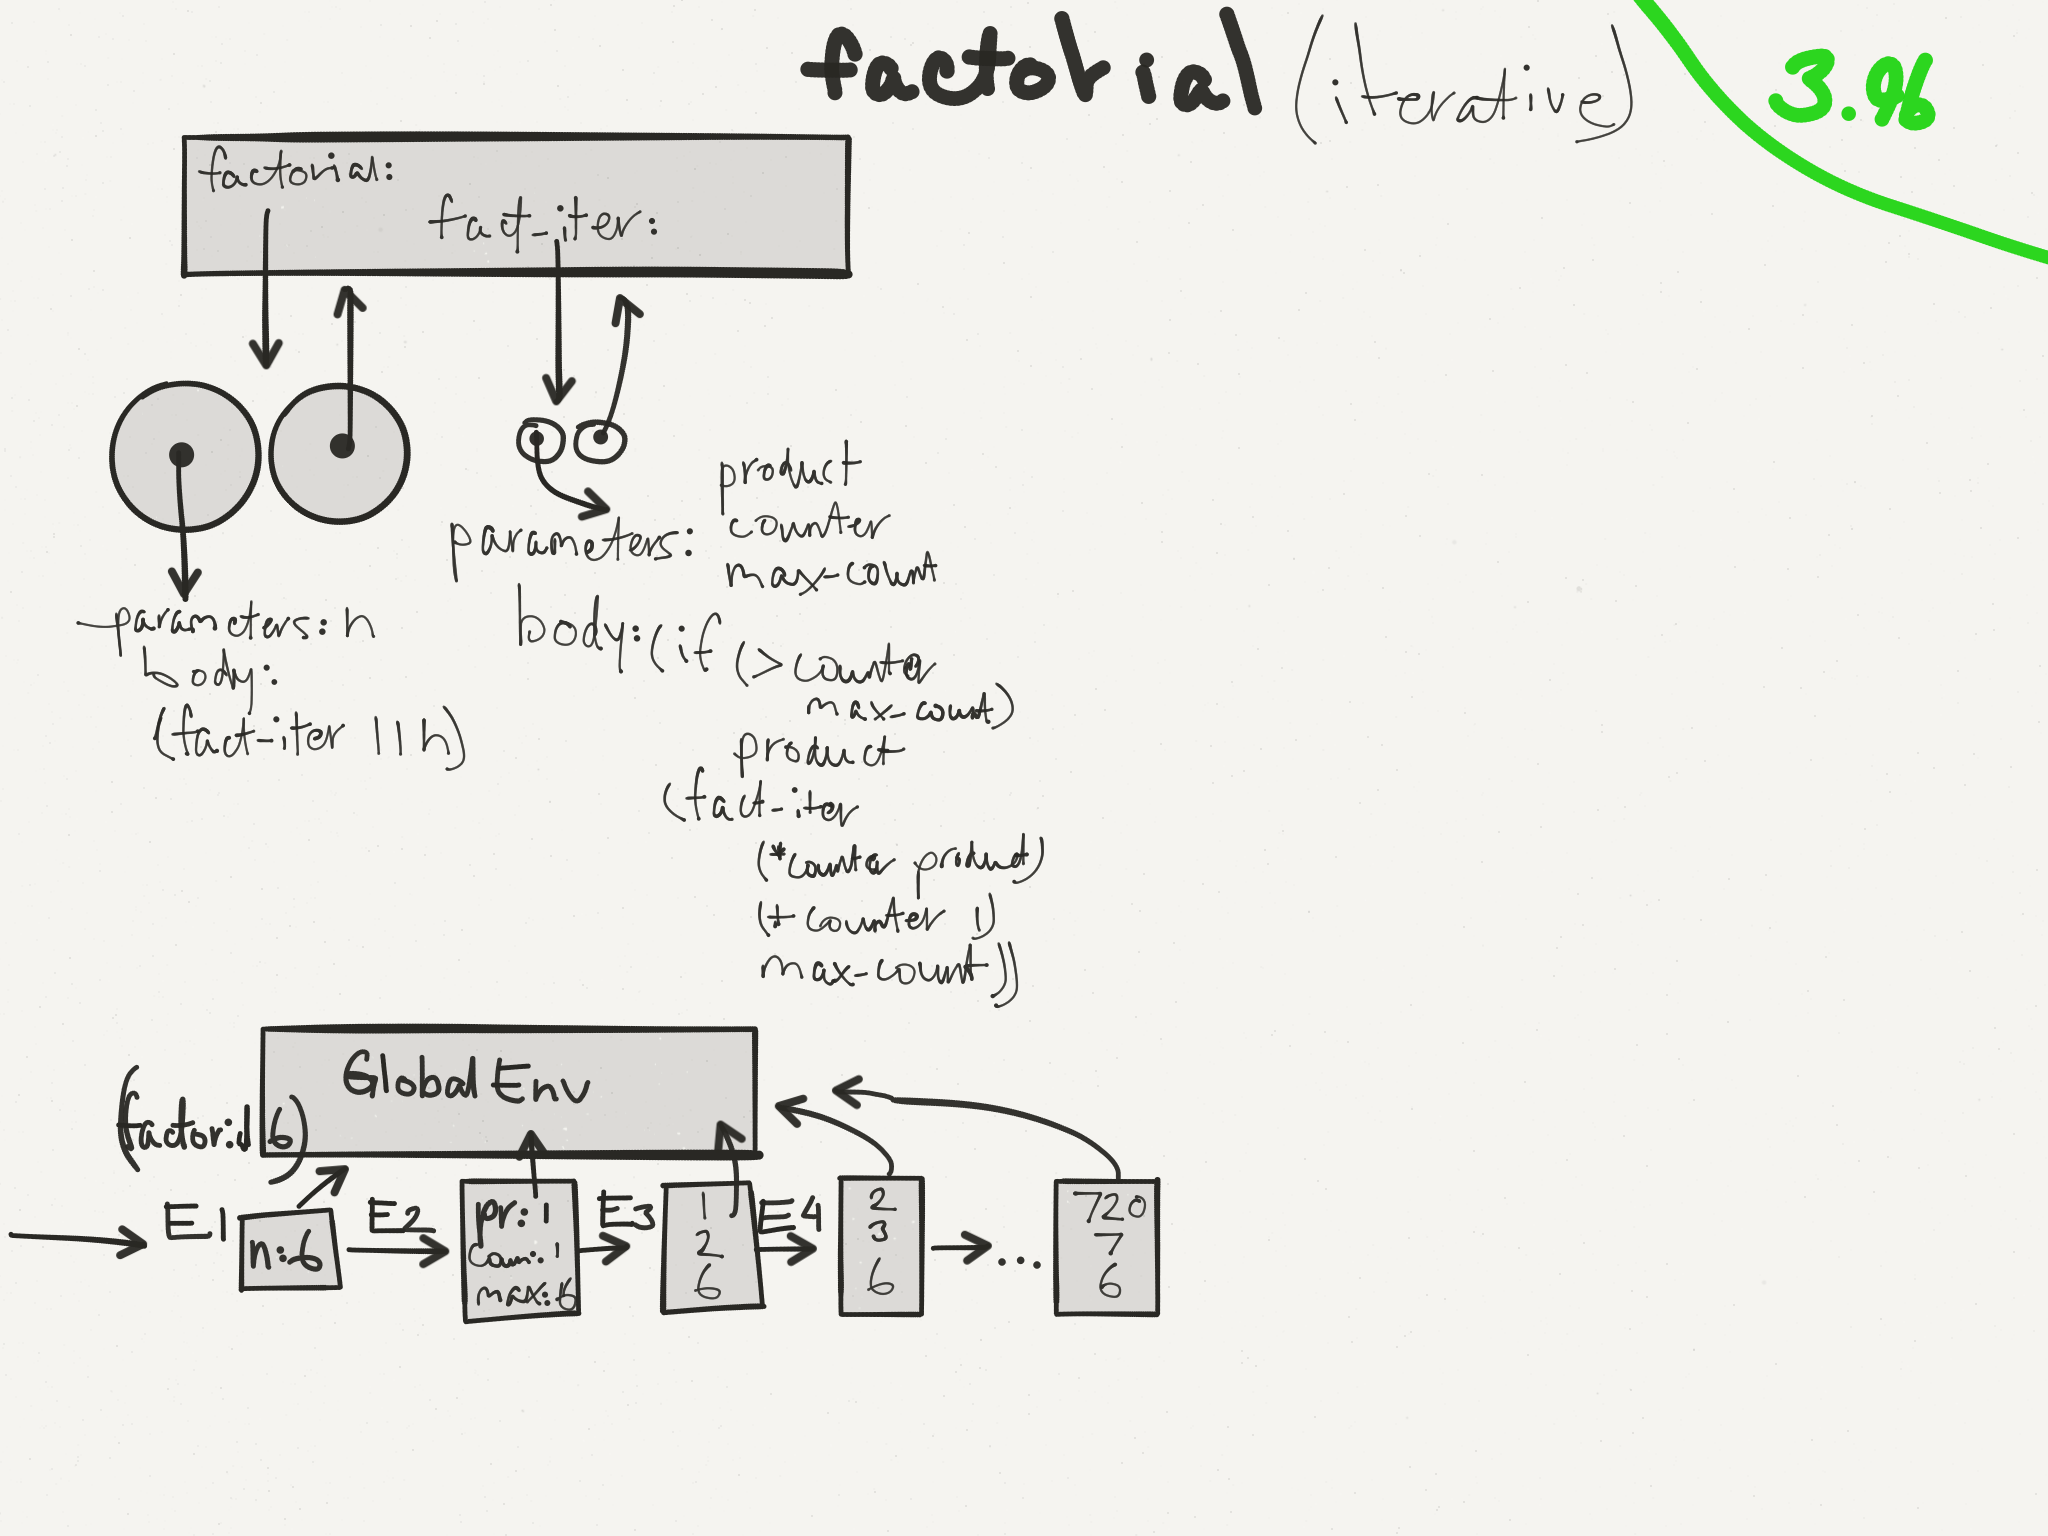 factorial (iterative)
3.9b
factorial:
fact-iter:
parameters: n
body:
(fact-iter 1 1 n)
parameters: product
counter
max-count
body: (if (> counter
max-count)
product
(fact-iter
(* counter product)
(+ counter 1)
max-count))
Global Env
(factorial 6)
E1
n: 6
E2
pr: 1
coun: 1
max: 6
E3
1
2
6
E4
2
3
6
...
720
7
6